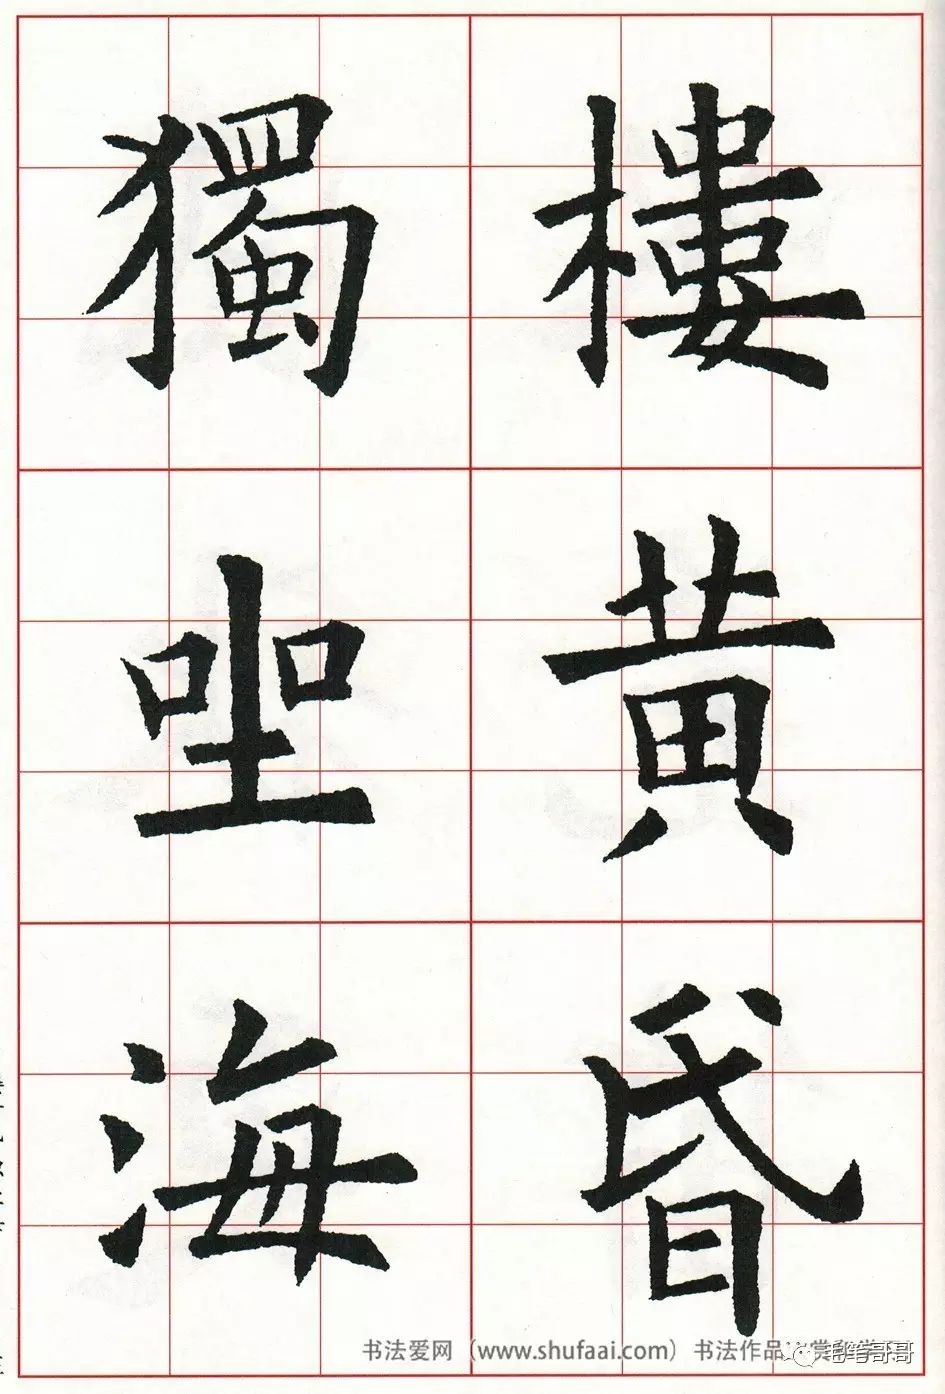 樓黄昏
獨坐海
书法爱网（www.shufaai.com）书法作品
毛笔哥哥